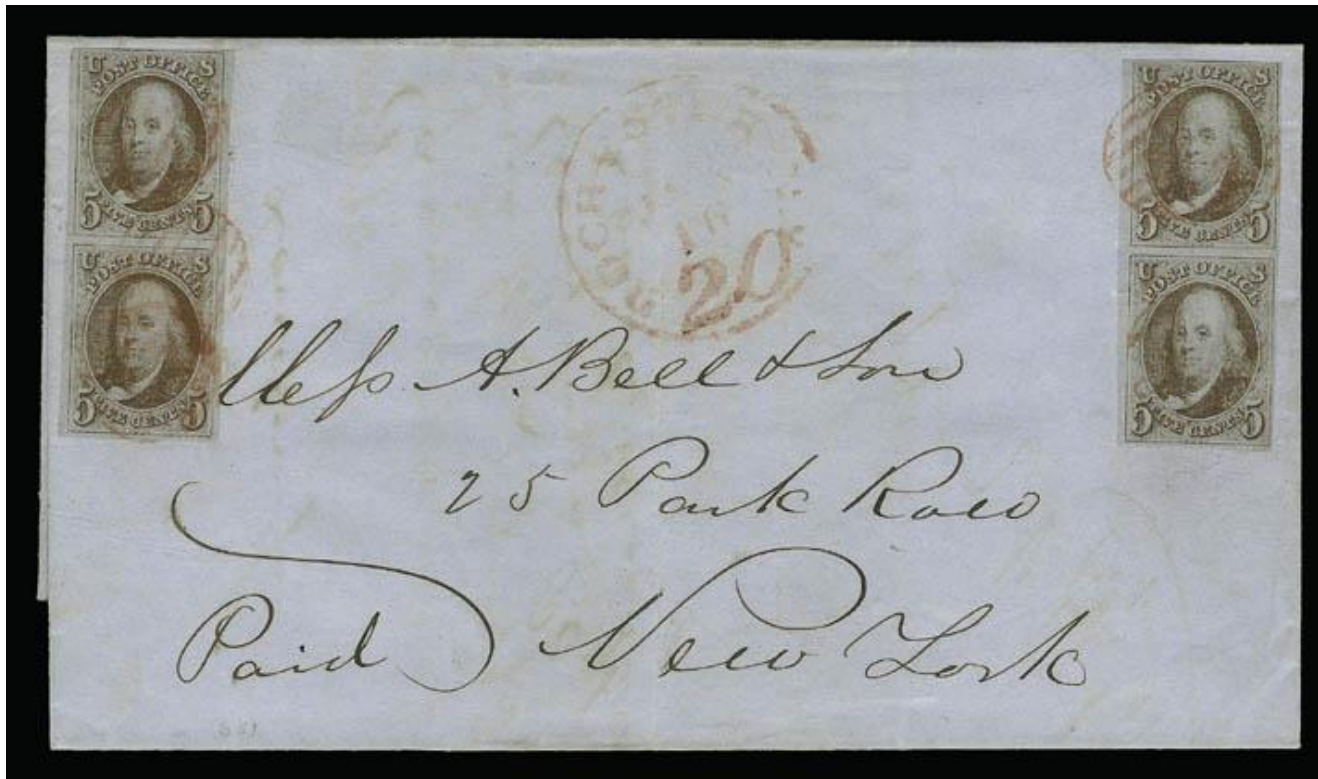 U S
POST OFFICE
5 FIVE CENTS 5
U S
POST OFFICE
5 FIVE CENTS 5
ROCHESTER
20
U S
POST OFFICE
5 FIVE CENTS 5
U S
POST OFFICE
5 FIVE CENTS 5
Mess A. Bell & Son
25 Park Row
Paid New York